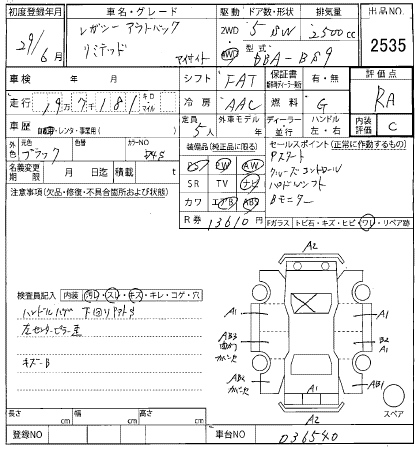 初度登録年月 車名・グレード 駆動 ドア数・形状 排気量 出品NO.
29年 6月 レガシー アウトバック 2WD 5 BW 2500cc 2535
リミテッド 4WD 型式 DBA-BS9
車検 年 月 シフト FAT 保証書 有・無 評価点
走行 キロ マイル 冷房 AAC 燃料 G RA
車歴 自家用・レンタ・事業用( ) 定員 5人 外車モデル 年 ディーラー 並行 ハンドル 左・右 内装評価 C
外色 元色 ブラック 色替 カラーNO D4S
装備品(純正品に限る) セールスポイント(正常に作動するもの)
名義変更期限 月 日迄 積載 t
PS PW AW Pスタート
SR TV ナビ クルーズコントロール
カワ エアB ABS パドルシフト
R券 13610円 Bモニター
注意事項(欠品・修復・不具合箇所および状態)
Fガラス トビ石・キズ・ヒビ・ワレ・リペア跡
A2
検査員記入 内装 汚レ・スレ・キズ・キレ・コゲ・穴
ハンドルハゲ
キズ-B
A1 A1
AB3 B2 A1
AB1
A1
A2
スペア
長さ cm 幅 cm 高さ cm
登録NO 車台NO 036540